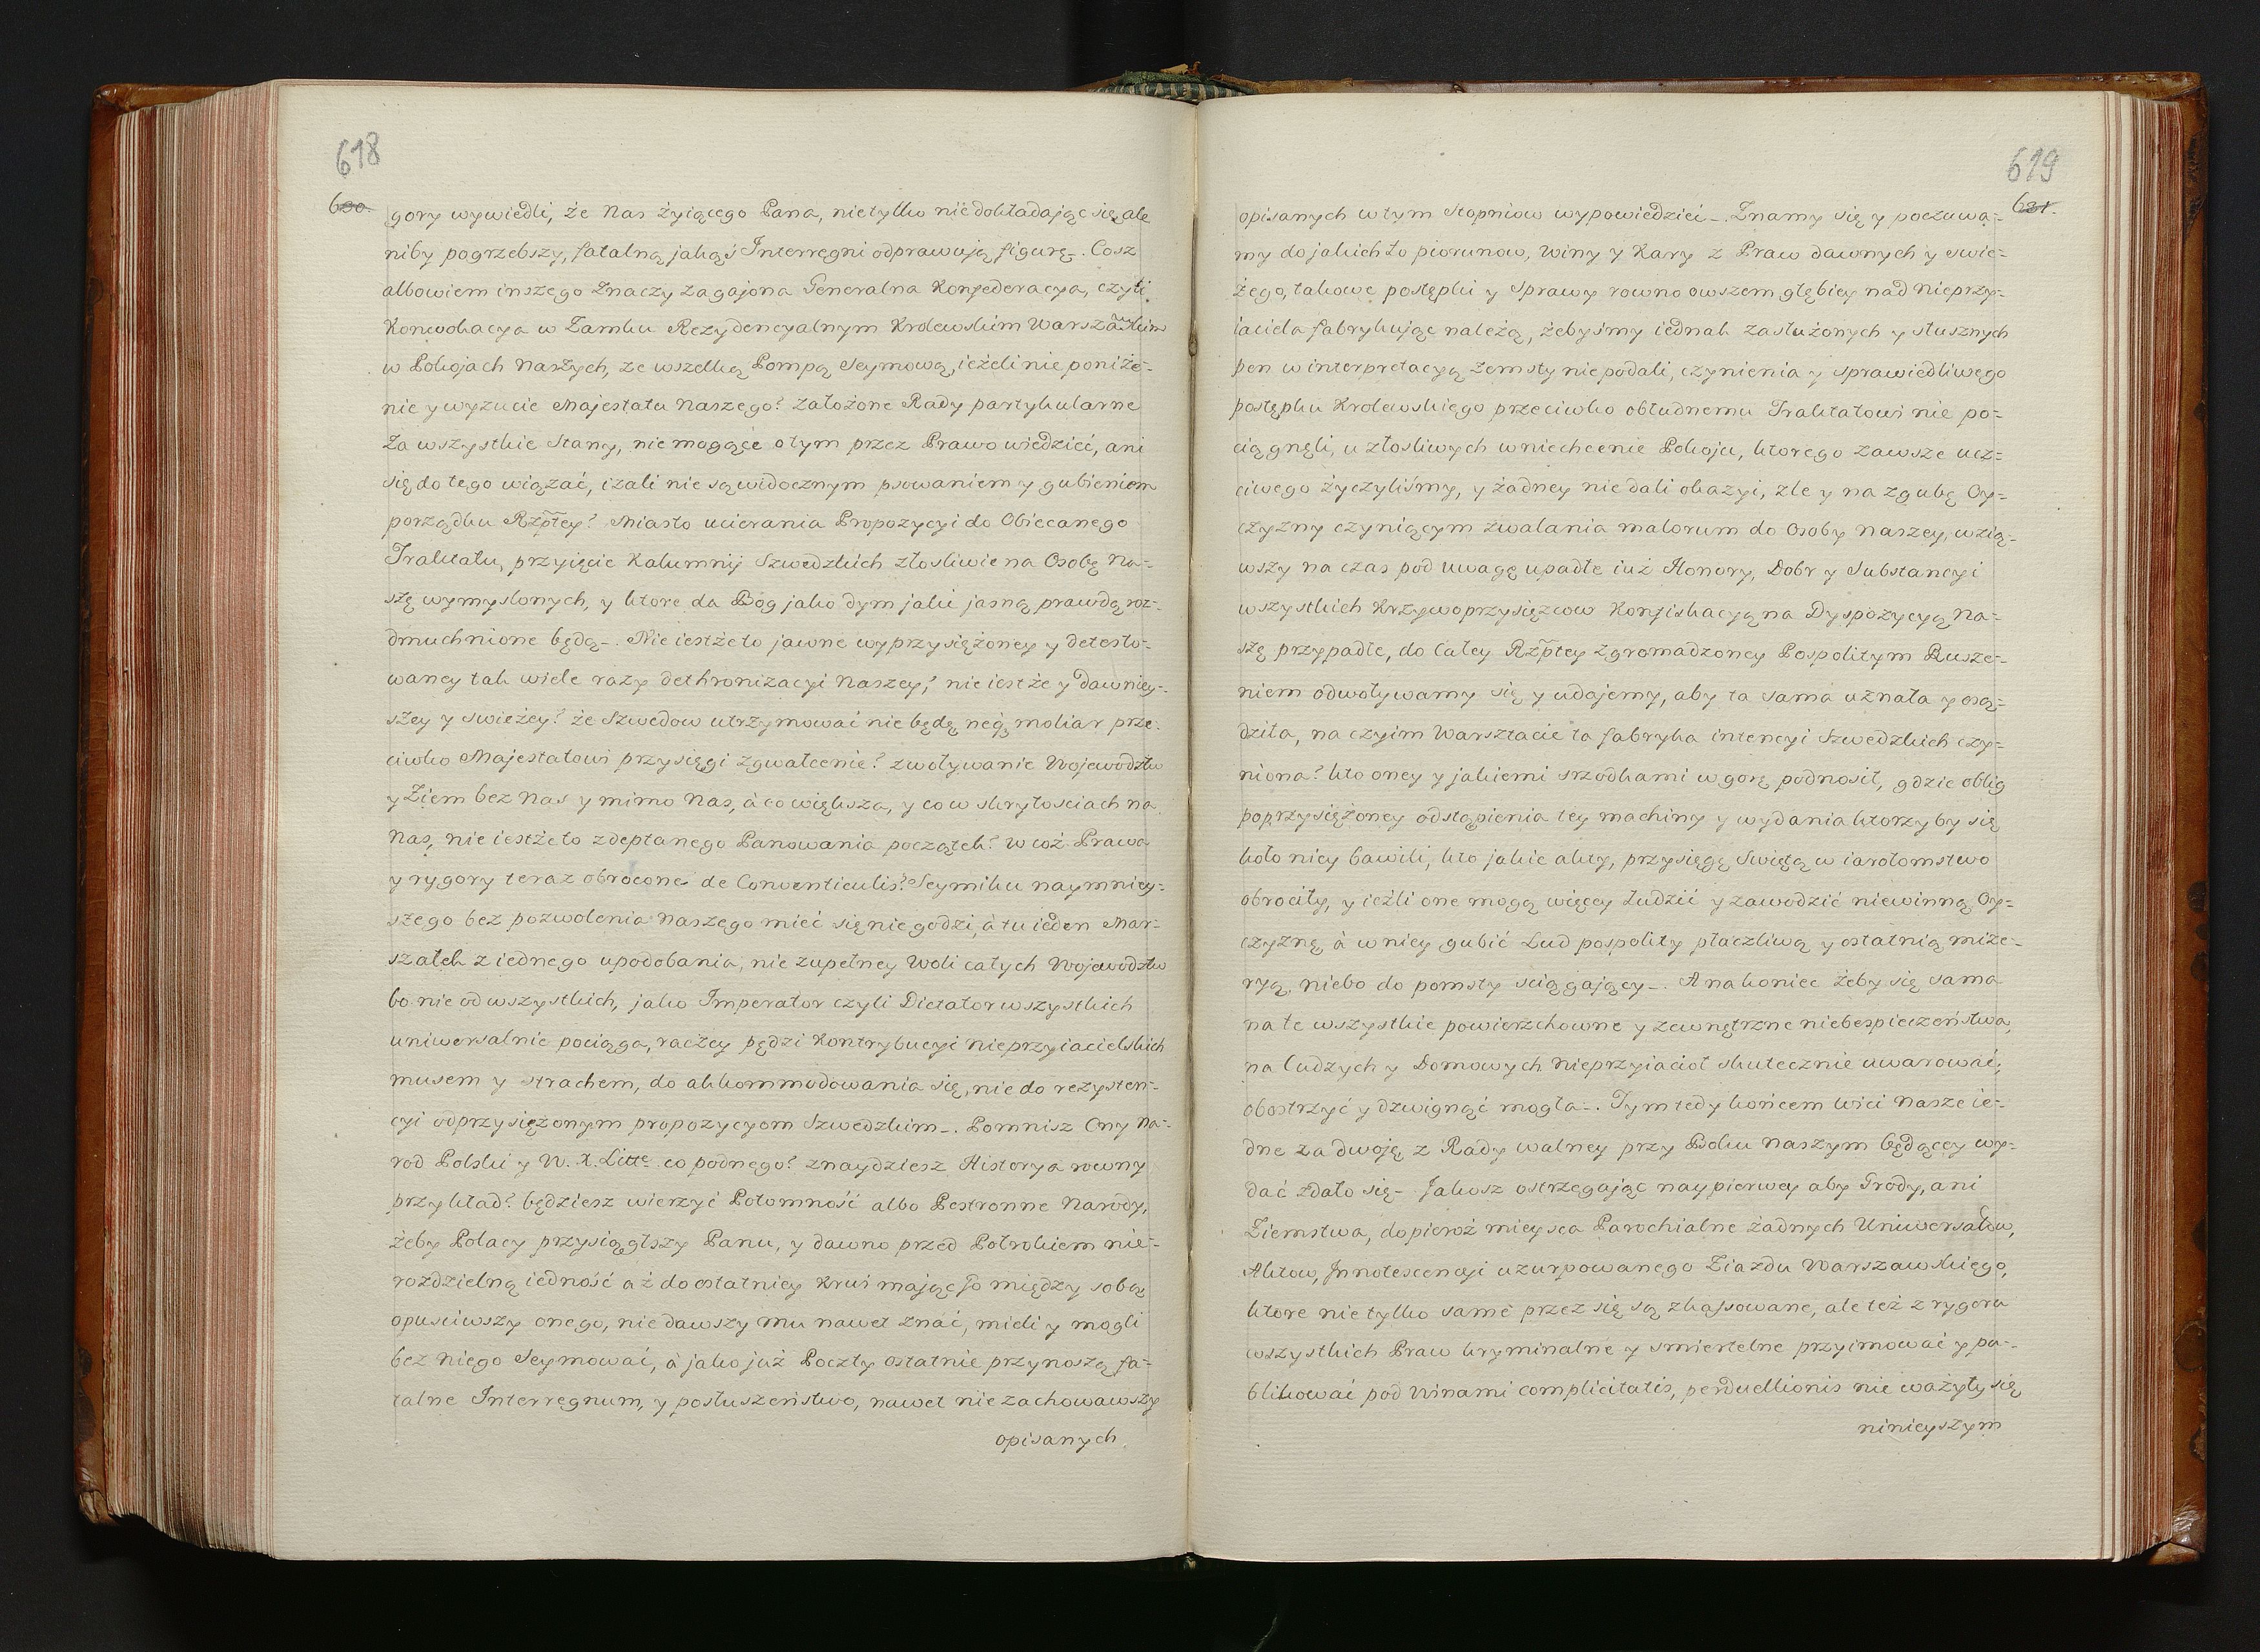 618
630.
gory wywiedli, że Nas żyiącego Pana, nietylko niedokładając się, ale
niby pogrzebszy, fatalną jakąś Interregni odprawują figurę. Cosz
albowiem inszego znaczy zagajona Generalna Konfederacya, czyli
Konwokacya w Zamku Rezydencyalnym Krolewskim Warszāskim
w Pokojach Naszych, ze wszelką Pompą Seymową, ieżeli nie poniże=
nie y wyzucie Majestatu Naszego? założone Rady partykularne
za wszystkie Stany, nie mogące o tym przez Prawo wiedzieć, ani
się do tego wiązać, izali nie są widocznym psowaniem y gubieniem
porządku Rzp̃tey? Miasto ucierania Propozycyi do Obiecanego
Traktatu, przyięcie Kalumnij Szwedzkich złosliwie na Osobę Na=
szę wymyslonych, y ktore da Bog jako dym jaki jasną prawdą roz=
dmuchnione będą. Nie iestże to jawne wyprzysiężoney y detesto=
waney tak wiele razy dethronizacyi Naszey? nie iest że y dawniey=
szey y swieżey? że Szwedow utrzymować nie będę neq̃ moliar prze=
ciwko Majestatowi przysięgi zgwałcenie? zwoływanie Wojewodztw
y Ziem bez Nas y mimo Nas, à co większa, y co w skrytościach na
Nas, nie iestże to zdeptanego Panowania początek? W coż Prawa
y rygory teraz obrocone de Conventiculis? Seymiku naymniey=
szego bez pozwolenia Naszego mieć się nie godzi, à tu ieden Mar=
szałek z iednego upodobania, nie zupełney Woli całych Wojewodztw
bo nie od wszystkich, jako Imperator czyli Dictator wszystkich
uniwersalnie pociąga, raczey pędzi Kontrybucyi nieprzyiacielskich
musem y strachem, do akkommodowania się, nie do rezysten=
cyi odprzysiężonym propozycyom Szwedzkim. Pomnisz Cny Na=
rod Polski y W. X. Litte co podnego? znaydziesz Historya rowny
przykład? będziesz wierzyć Potomność albo Postronne Narody,
żeby Polacy przysiągłszy Panu, y dawno przed Potrokiem nie=
rozdzielną iedność aż do ostatniey Krwi mając jo między sobą
opuściwszy onego, nie dawszy mu nawet znać, mieli y mogli
bez niego Seymować, à jako już Poczty ostatnie przynoszą fa=
talne Interregnum, y posłuszeństwo, nawet nie zachowawszy
opisanych
619
631.
opisanych w tym stopniow wypowiedzieć. Znamy się y poczuwa=
my do jakich to piorunow, winy y Kary z Praw dawnych y swie=
żego, takowe postępki y Sprawy rowno owszem głębiey nad nieprzy=
iaciela fabrykując należą, żebyśmy iednak zasłużonych y słusznych
pen w interpretacyą zemsty nie podali, czynienia y sprawiedliwego
postępku Krolewskiego przeciwko obłudnemu Traktatowi nie po=
ciągnęli, u złosliwych w niechcenie Pokoju, ktorego zawsze ucz=
ciwego życzyliśmy, y żadney nie dali okazyi, zle y na zgubę Oy=
czyzny czyniącym zwalania malorum do Osoby Naszey, wzią=
wszy na czas pod uwagę upadłe iuż Honory, Dobr y Substancyi
wszystkich Krzywoprzysięzcow Konfiskacyą na Dyspozycyą Na=
szę przypadłe, do Całey Rzp̃tey zgromadzoney Pospolitym Rusze=
niem odwoływamy się y udajemy, aby ta sama uznała y osą=
dziła, na czyim Warsztacie ta fabryka intencyi Szwedzkich czy=
niona? kto oney y jakiemi srzodkami w gorę podnosił, gdzie oblig
poprzysiężoney odstąpienia tey machiny y wydania ktorzy by się
koło niey bawili, kto jakie akty, przysięgę Swiętą w iarołomstwo
obrociły, y ieżli one mogą więcey łudzić y zawodzić niewinną Oy=
czyznę à w niey gubić Lud pospolity płaczliwą y ostatnią mize=
ryą, niebo do pomsty sciągający. A nakoniec żeby się sama
na te wszystkie powierzchowne y zewnętrzne niebespieczeństwa,
na Cudzych y Domowych nieprzyiacioł skutecznie uwarować,
obostrzyć y dzwignąć mogła. Tym tedy końcem wici Nasze ie=
dne za dwoję z Rady walney przy Boku Naszym będącey wy=
dać zdało się. Jakosz ostrzegając naypierwey aby Grody, ani
Ziemstwa, dopieroż mieysca Parochialne żadnych Uniwersałow,
Aktow, Innotescencyi uzurpowanego Ziazdu Warszawskiego,
ktore nie tylko same przez się są zkassowane, ale też z rygoru
wszystkich Praw kryminalne y smiertelne przyimować y pu=
blikować pod winami complicitatis, perduellionis nie ważyły się
ninieyszym